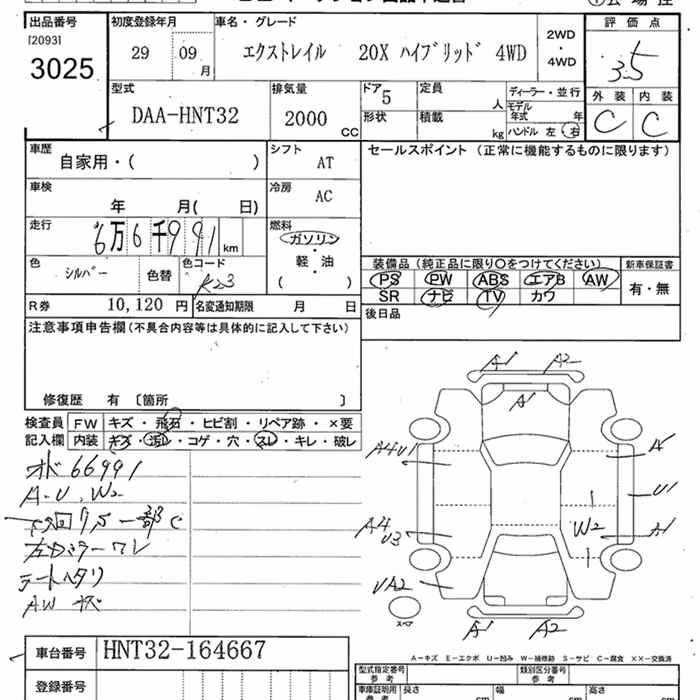 出品番号
[2093]
3025
初度登録年月
29 09 月
車名・グレード
エクストレイル 20X ハイブリッド 4WD
2WD
・
4WD
評価点
3.5
外装 内装
C C
型式
DAA-HNT32
排気量
2000 CC
ドア 5
定員 人
形状
積載 kg
ディーラー・並行
モデル年式 年
ハンドル 左 右
車歴
自家用・( )
シフト
AT
セールスポイント (正常に機能するものに限ります)
車検
年 月( 日)
冷房
AC
走行
6万6千991 km
燃料
ガソリン
・
軽・油
( )
色
シルバー
色替
色コード
K23
装備品 (純正品に限り○をつけてください)
新車保証書
PS PW ABS エアB AW
有・無
SR ナビ TV カワ
R券 10,120 円
名変通知期限 月 日
後日品
注意事項申告欄(不具合内容等は具体的に記入して下さい)
修復歴 有 [箇所 ]
検査員
記入欄
FW キズ・飛石・ヒビ割・リペア跡・×要
内装 キズ・汚レ・コゲ・穴・スレ・キレ・破レ
オド 66991
A-U、W2
一部C
左ドミラーワレ
シートヘタリ
AW キズ
A1 A2
A1
A4U1
U1
W2
A1
A4
U3
UA2
スペア
A1 A2
A-キズ E-エクボ U-凹み W-補修跡 S-サビ C-腐食 XX-交換済
車台番号 HNT32-164667
登録番号
型式指定番号
参考
類別区分番号
参考
車庫証明用
参考
長さ cm
幅 cm
高さ cm